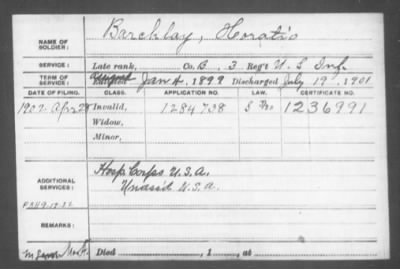 NAME OF SOLDIER: Barchlay, Horatio
SERVICE: Late rank, Co. B, 3 Reg't U.S. Inf.
TERM OF SERVICE: Enlisted Jan 4, 1899 Discharged July 19, 1901
DATE OF FILING. CLASS. APPLICATION NO. LAW. CERTIFICATE NO.
1902 Apr 2 Invalid, 1284738 1236991
Widow,
Minor,
ADDITIONAL SERVICES: Hosp. Corps U.S.A.
Unassd U.S.A.
REMARKS:
Died , 1 , at